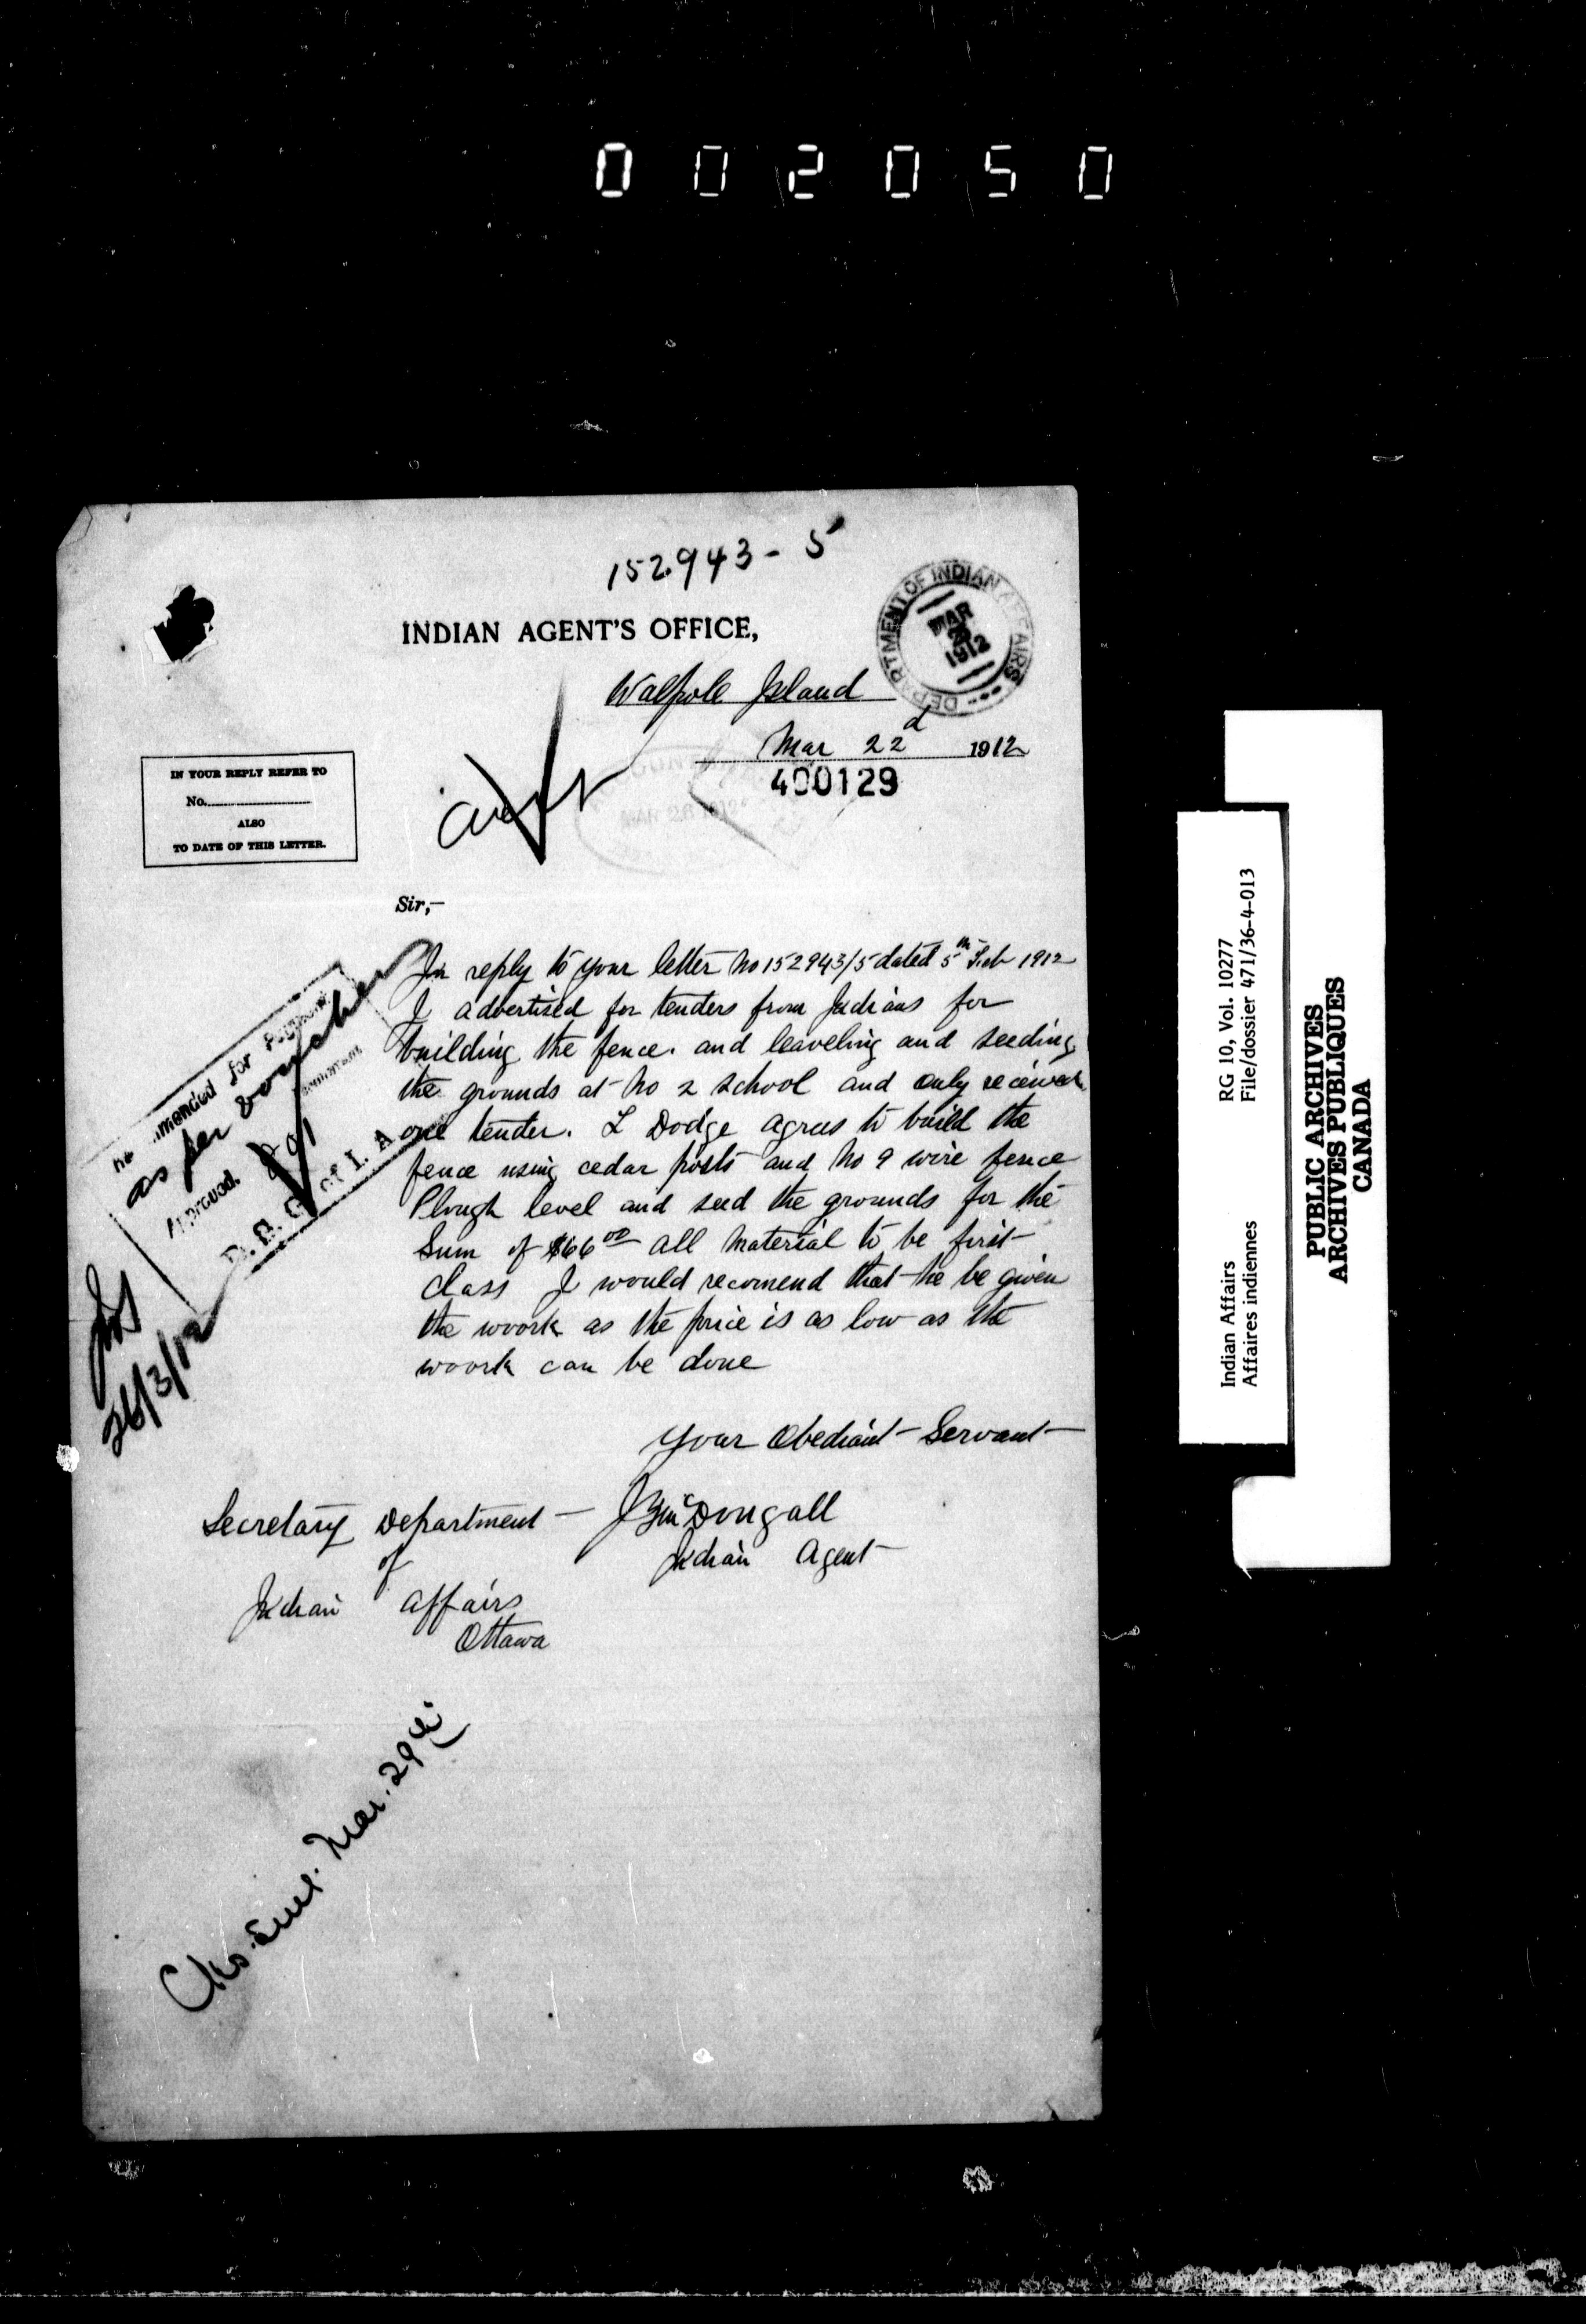 002050
152943-5
INDIAN AGENT'S OFFICE,
DEPARTMENT OF INDIAN AFFAIRS
MAR
1912
Walpole Island
Mar 22d 1912
400129
IN YOUR REPLY REFER TO
No.
ALSO
TO DATE OF THIS LETTER.
MAR 26 1912
Sir,—
In reply to your letter No 152943/5 dated 5th Feb 1912
I advertised for tenders from Indians for
building the fence. and leaveling and seeding
the grounds at No 2 school and only received
one tender. L Dodge agrees to build the
fence using cedar posts and No 9 wire fence
Plough level and seed the grounds for the
Sum of $66.00 all material to be first
class I would recomend that he be given
the woork as the price is as low as the
woork can be done
Your Obediant Servant
J McDougall
Indian Agent
Secretary Department
of
Indian Affairs
Ottawa
mmended for Payment
as per voucher
Approved.
D. S. G. of I. A.
26/3/12
Mar. 29th
RG 10, Vol. 10277
File/dossier 471/36-4-013
Indian Affairs
Affaires indiennes
PUBLIC ARCHIVES
ARCHIVES PUBLIQUES
CANADA